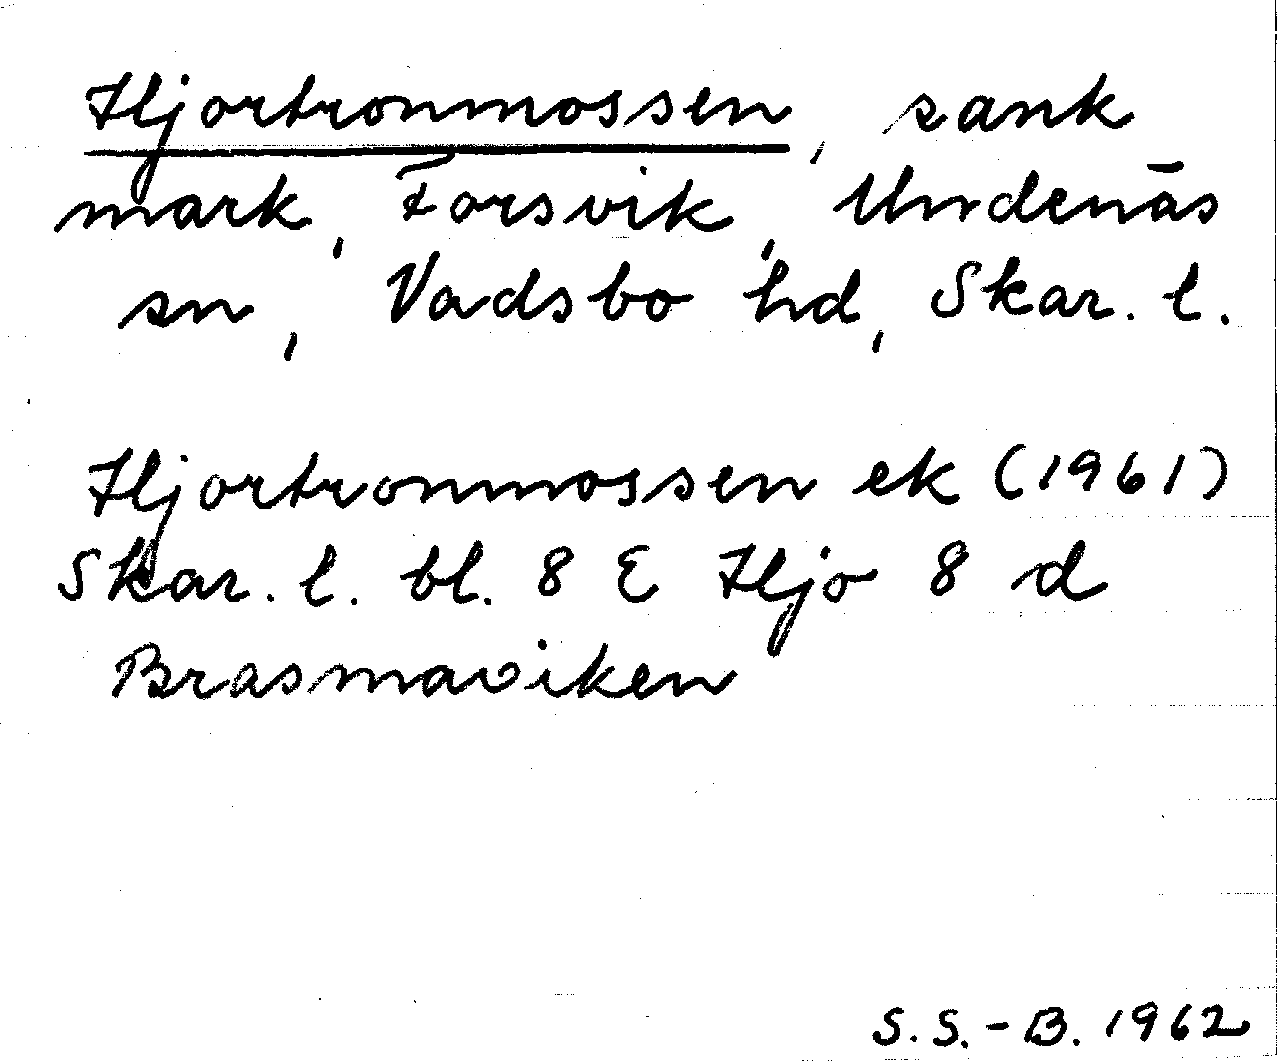 Hjortronmossen, sank
mark, Forsvik, Undenäs
sn, Vadsbo hd, Skar. l.
Hjortronmossen ek (1961)
Skar. l. bl. 8 E Hjo 8 d
Brasmaviken
S.S.-B. 1962